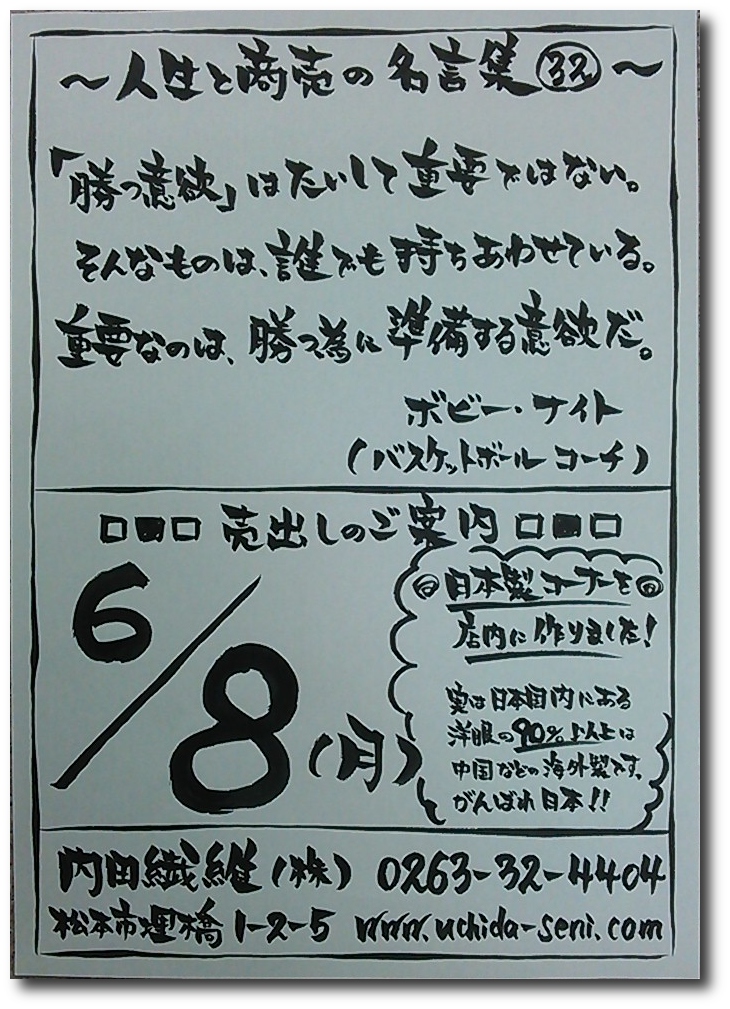 ～人生と商売の名言集㉜～
「勝つ意欲」はたいして重要ではない。
そんなものは、誰でも持ちあわせている。
重要なのは、勝つ為に準備する意欲だ。
ボビー・ナイト
(バスケットボールコーチ)
□■□ 売出しのご案内 □■□
6/8(月)
◎日本製コーナーを◎
店内に作りました！
実は日本国内にある
洋服の90%以上は
中国などの海外製です。
がんばれ日本！！
内田繊維(株) 0263-32-4404
松本市埋橋1-2-5 www.uchida-seni.com